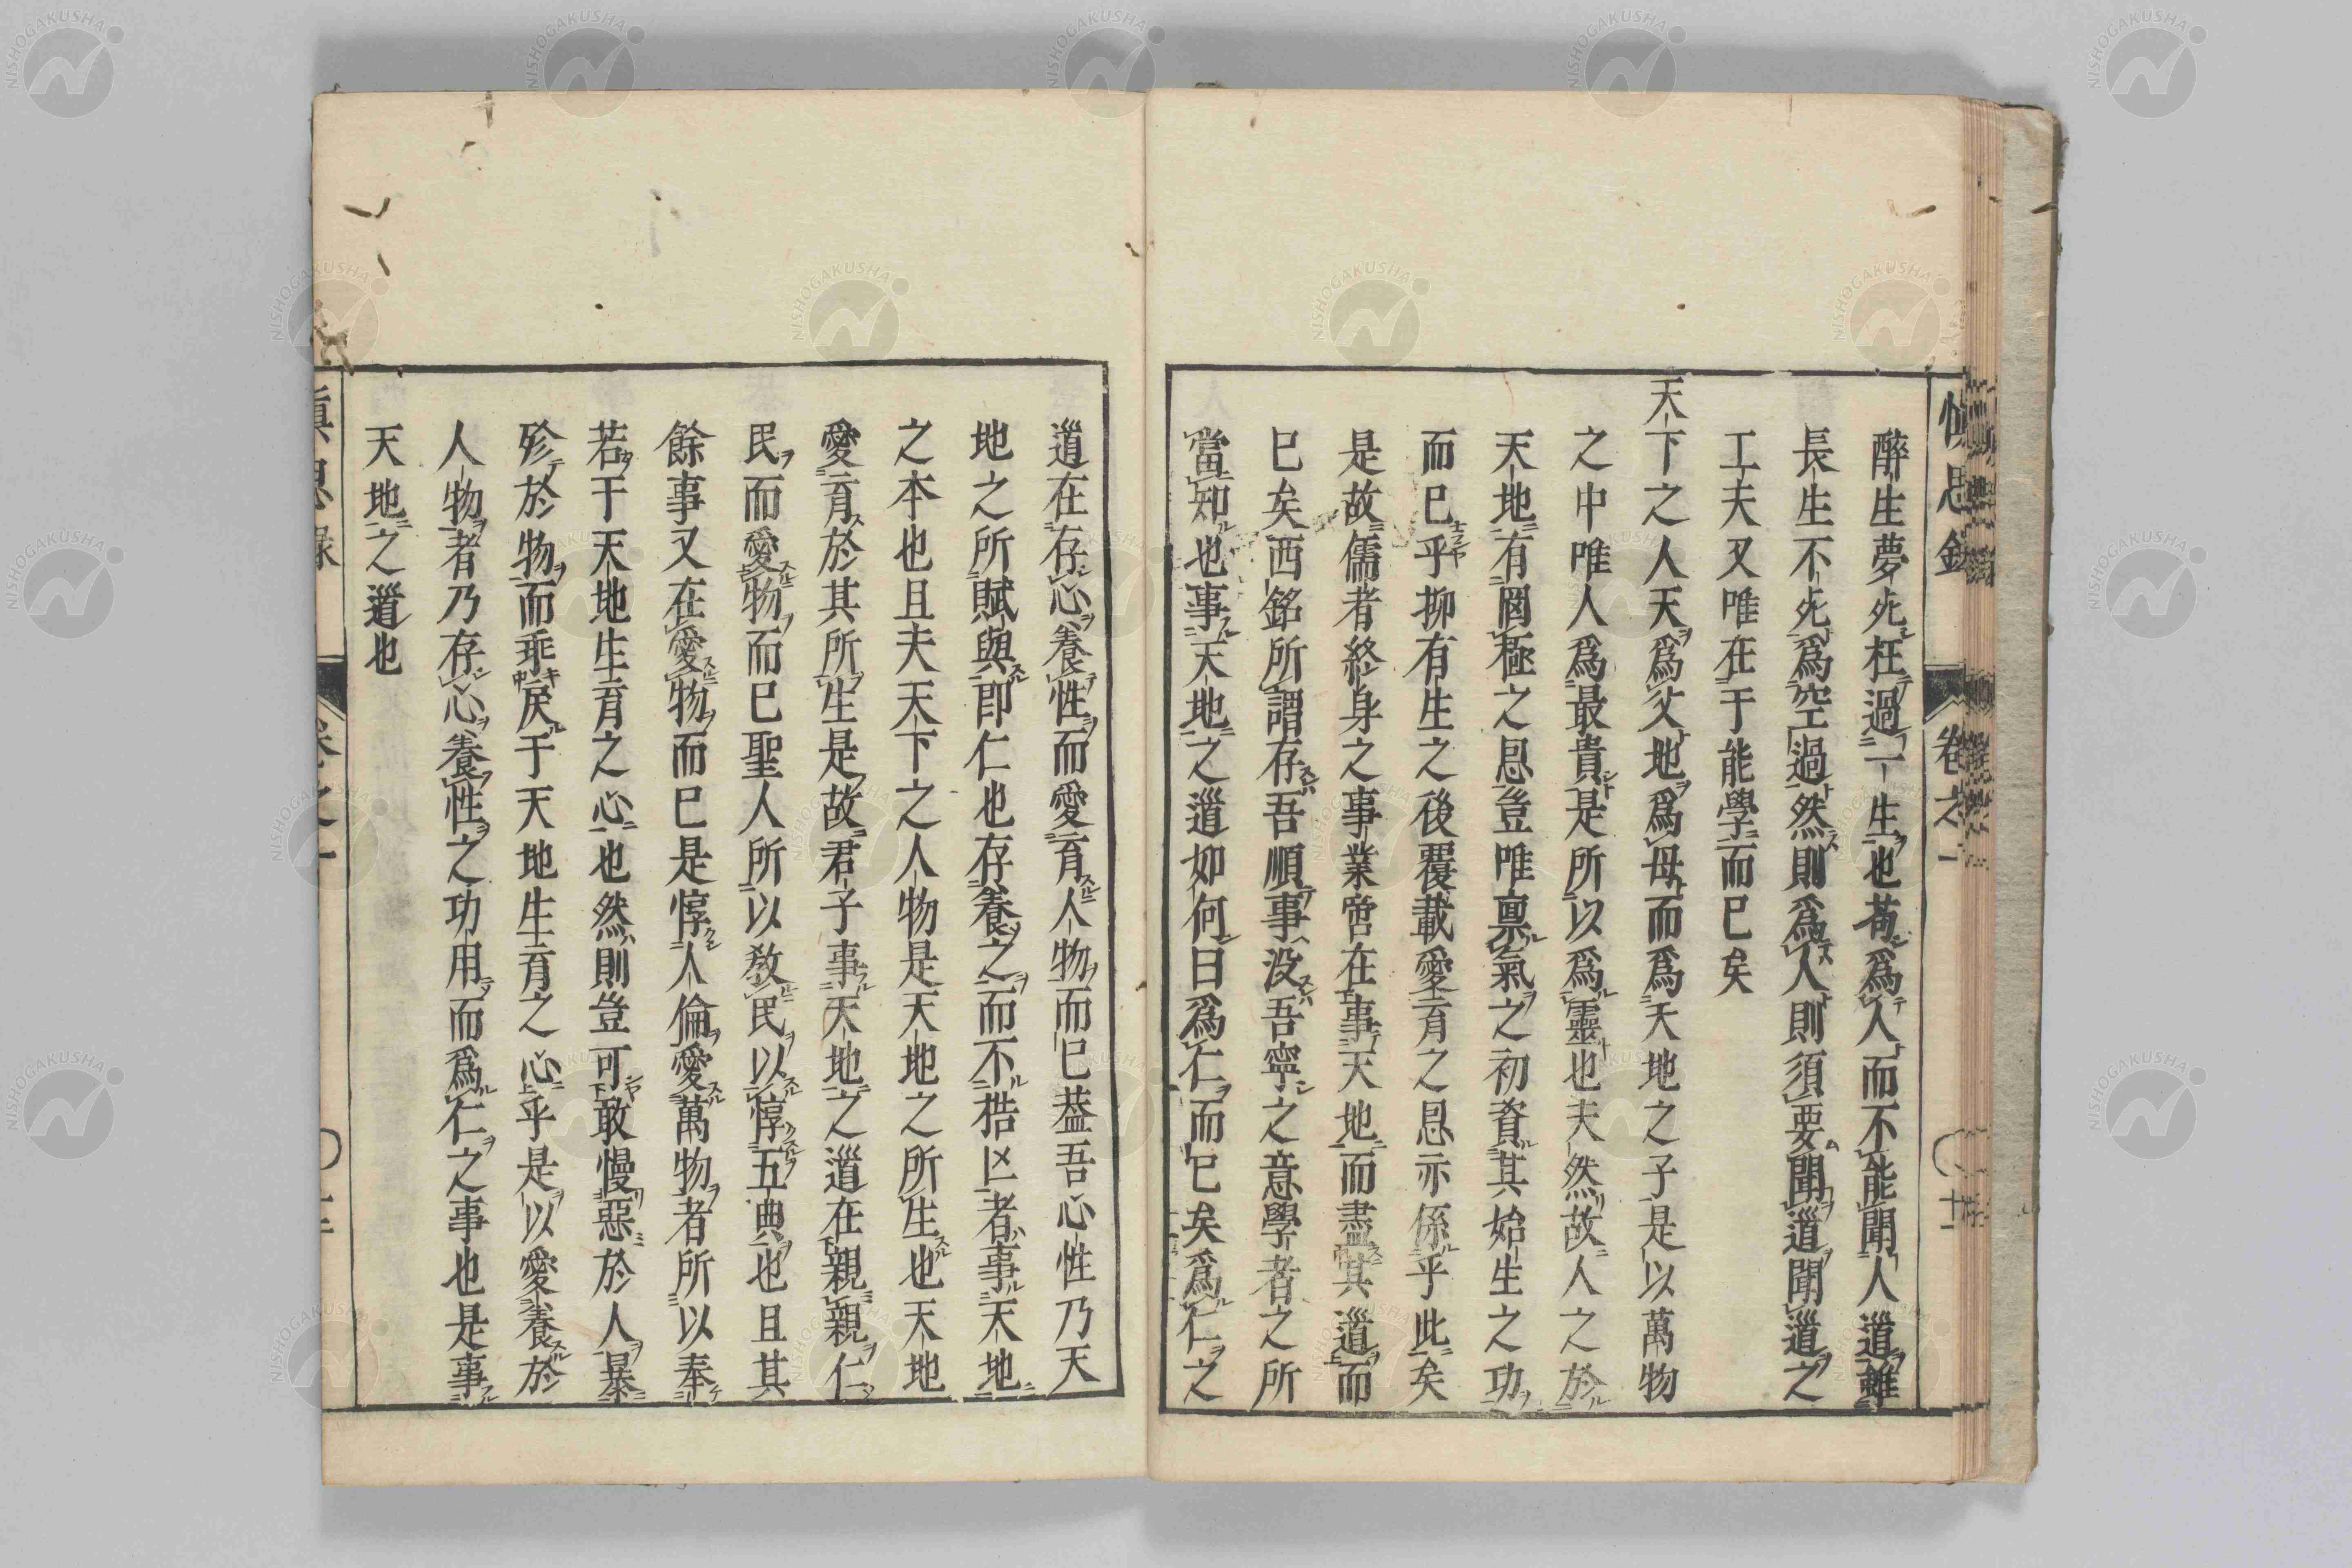 醉生夢死枉過一生也苟爲人而不能聞人道雖
長生不死爲空過然則爲人則須要聞道聞道之
工夫又唯在于能學而已矣
天下之人天爲父地爲母而爲天地之子是以萬物
之中唯人爲最貴是所以爲靈也夫然故人之於
天地有罔極之恩豈唯禀氣之初資其始生之功
而已乎抑有生之後覆載愛育之恩亦係乎此矣
是故儒者終身之事業啻在事天地而盡其道而
已矣西銘所謂存吾順事没吾寧之意學者之所
當知也事天地之道如何曰爲仁而已矣爲仁之
道在存心養性而愛育人物而已葢吾心性乃天
地之所賦與即仁也存養之而不梏亡者事天地
之本也且夫天下之人物是天地之所生也天地
愛育於其所生是故君子事天地之道在親親仁
民而愛物而已聖人所以教民以惇五典也且其
餘事又在愛物而已是惇人倫愛萬物者所以奉
若于天地生育之心也然則豈可敢慢惡於人暴
殄於物而乖戾于天地生育之心乎是以愛養於
人物者乃存心養性之功用而爲仁之事也是事
天地之道也
慎思録
卷之一